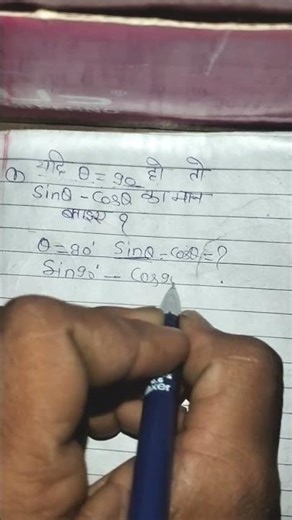 यदि θ = 90 हो तो
Sinθ - Cosθ का मान
बताइए ?
θ = 90° Sinθ - Cosθ = ?
Sin90° - Cos9